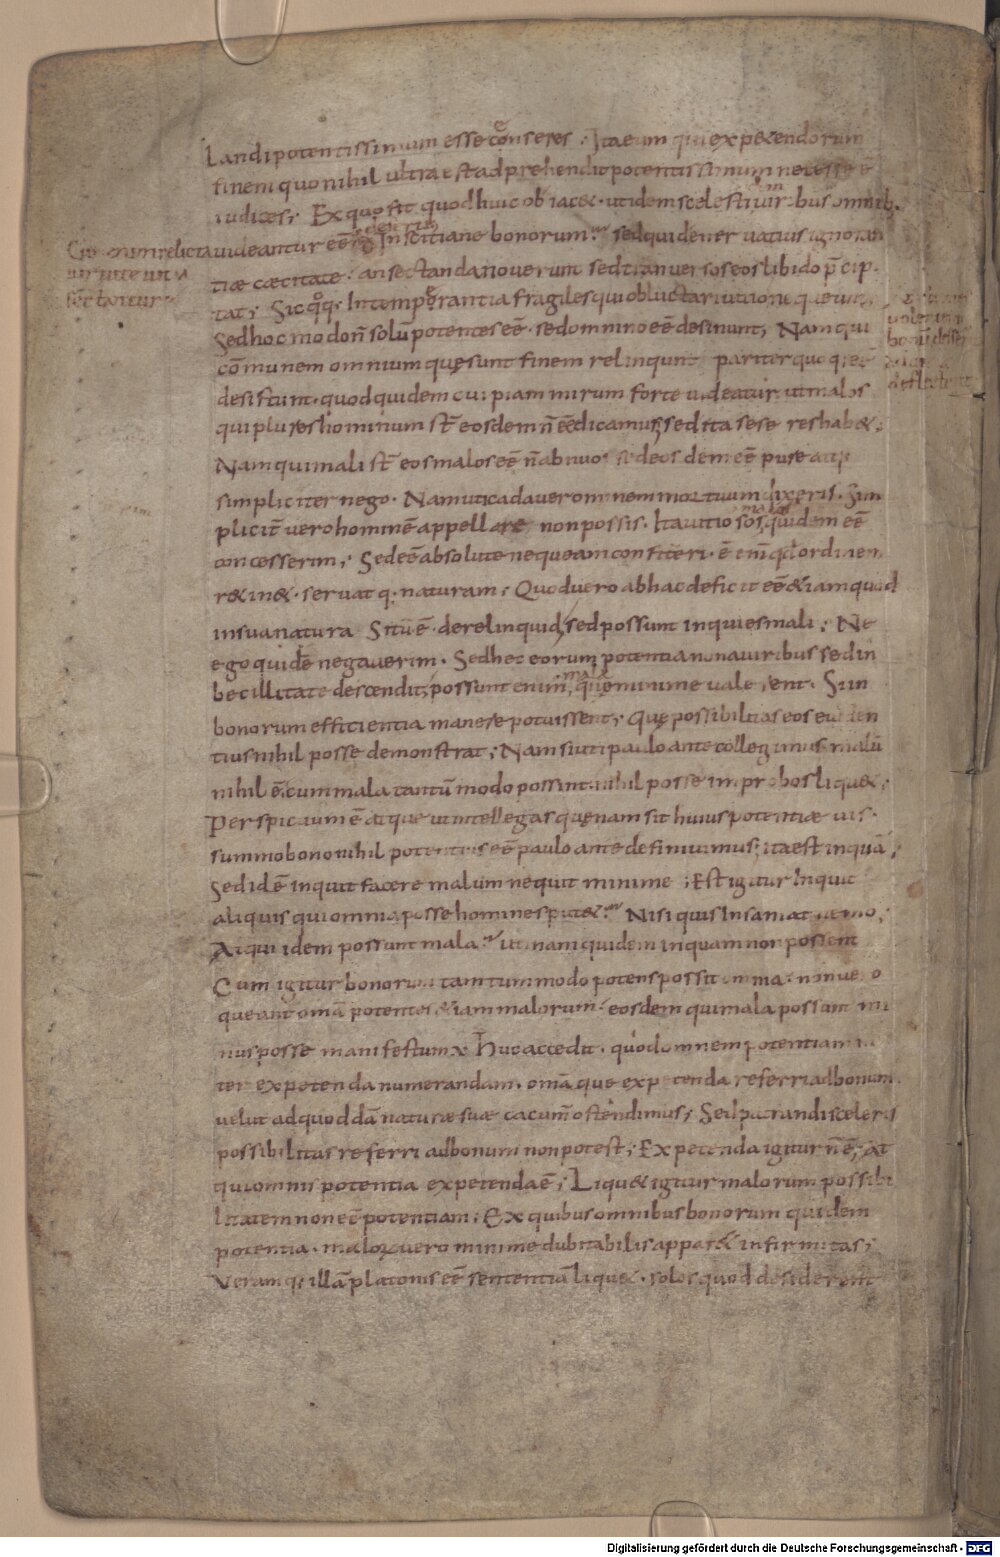 landi potentissimum esse censeres ; Ita eum qui expetendorum
finem quo nihil ultra est adprehendit potentissimum necesse ē
iudices ; Ex quo fit quod huic obiaceꝫ . ut idem scelesti uiribus omnib;
uideantur eē Inscitiane bonorum ? sed quid eneruatius ignoran
tiæ cæcitate . an sectanda nouerunt sed transuersos eos libido p̄cip
tat ; Sic qͦq; Intemperantia fragiles qui obluctari uitio nequeunt
Sed hoc modo n̄ solū potentes eē . sed omnino eē desinunt ; Nam qui
cōmunem omnium quę sunt finem relinqunt pariter quoq; eē
desistunt . quod quidem cuipiam mirum forte uideatur ut malos
qui plures hominum st̄ eosdem n̄ eē dicamus ; sed ita sese res habe& ;
Nam qui mali st̄ eos malos eē n̄ abnuo sed eosdem eē pure atq;
simpliciter nego . Nam uti cadauer ominem mortuum dixeris . sim
plicit̄ vero hominē appellare non possis . Ita uitiosos malos quidem eē
concesserim ; Sed eē absolute nequeam confiteri . ē enī qd ordinem
r&in& . seruatq; naturam ; Quod uero ab hac deficit eē &iam quod
in sua natura Sitū ē . derelinquid ; sed possunt inquies mali ; Ne
ego quidē negauerim . Sed hec eorum potentia non a uiribus sed in
becillitate descendit ; possunt enim mala quę minime ualerent . Si in
bonorum efficientia manere potuissent ; Quę possibilitas eos euiden
tius nihil posse demonstrat ; Nam si uti paulo ante collegimus malū
nihil ē . cum mala tantū modo possint . nihil posse improbos lique& ;
Perspicuum ē atque ut intellegas quęnam sit huius potentiæ uis .
summo bono nihil potentius eē paulo ante definiuimus ; ita est inquā ;
Sed idē inquit facere malum nequit minime ; Est igitur Inquit
aliquis qui omnia posse homines pute& ? Nisi quis Insaniat nemo ;
Atqui idem possunt mala ? utinam quidem inquam non possent
Cum igitur bonorum tantummodo potens possit omnia . non uero
queant omīa potentes &iam malorum . eosdem qui mala possunt mi
nus posse manifestum Huc accedit . quod omnem potentiam in
ter expetenda numerandam . omīa que expetenda referri ad bonum
velut ad quoddā naturæ suæ cacumē ostendimus ; Sed patrandi sceleris
possibilitas referri ad bonum non potest ; Expetenda igitur n̄ ē ; At
qui omnis potentia expetenda ē ; Lique& igitur malorum possibi
litatem non eē potentiam ; Ex quibus omnibus bonorum quidem
potentia . maloꝝ uero minime dubitabilis appare& infirmitas ;
Veramq; illā platonis eē sententiā lique& . solos quod desiderent
relicta
uirtute uitia
sectantur
Digitalisierung gefördert durch die Deutsche Forschungsgemeinschaft - DFG